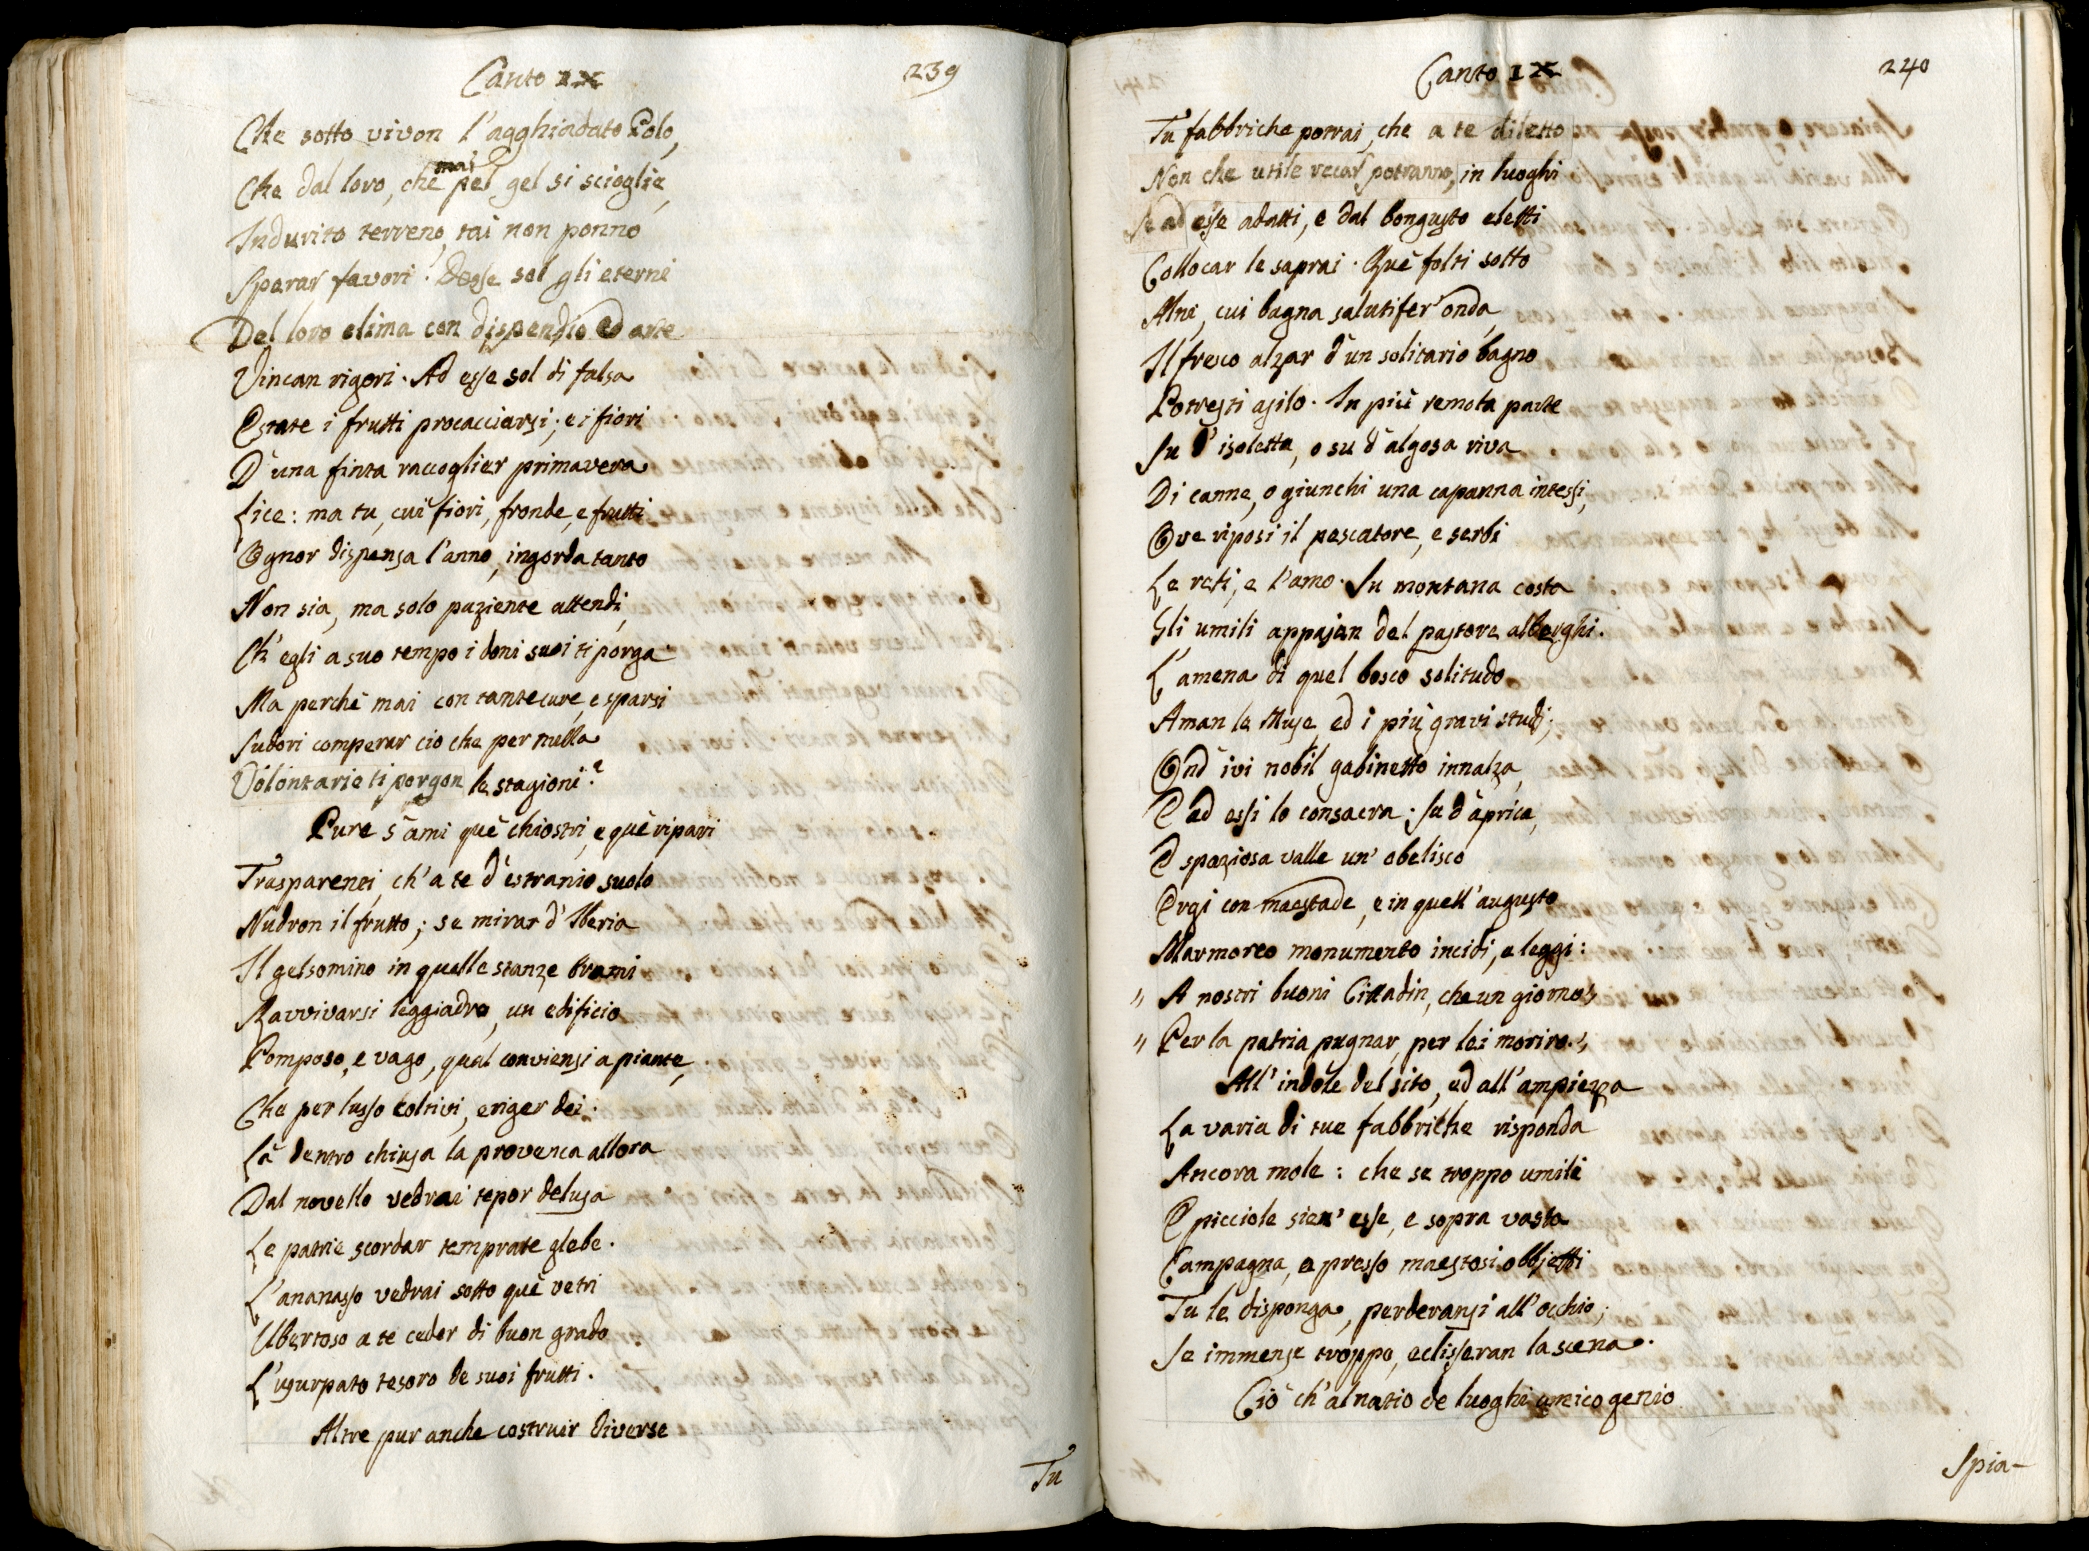 Canto IX
239
Che sotto vivon l'agghiadato Polo,
Che dal loro, che mai pel gel si scioglie,
Indurito terreno, tai non ponno
Sperar favori! Desse sol gli eterni
Del loro clima con dispendio ed arte
Vincan rigori. Ad esse sol di falsa
Estate i frutti procacciarsi; e i fiori
D'una finta raccoglier primavera
Lice: ma tu, cui fiori, fronde, e frutti
Ognor dispensa l'anno, ingorda tanto
Non sia, ma solo paziente attendi,
Ch'egli a suo tempo i doni suoi ti porga.
Ma perchè mai con tante cure, e sparsi
Sudori comperar ciò che per nulla
Volontarie ti porgon le stagioni?
Pure s'ami què chiostri, e què ripari
Trasparenti, ch'a te d'estranio suolo
Nudron il frutto; se mirar d'Iberia
Il gelsomino in quelle stanze brami
Ravvivarsi leggiadro, un edificio
Pomposo, e vago, qual conviensi a piante,
Che per lusso coltivi, eriger dei.
Là dentro chiusa la provenca allora
Dal novello vedrai tepor delusa
Le patrie scordar temprate glebe.
L'ananasso vedrai sotto què vetri
Ubertoso a te ceder di buon grado
L'usurpato tesoro de suoi frutti.
Altre pur anche costruir diverse
Tu
Canto IX
240
Tu fabbriche potrai, che a te diletto
Non che utile recar potranno, in luoghi
Se ad esse adatti, e dal bongusto eletti
Collocar le saprai. Què folti sotto
Alni, cui bagna salutifer'onda,
Il fresco alzar d'un solitario bagno
Potresti asilo. In più remota parte
Su d'isoletta, o su d'algosa riva
Di canne, o giunchi una capanna intessi,
Ove riposi il pescatore, e serbi
Le reti, e l'amo. Su montana costa
Gli umili appajan del pastore alberghi.
L'amena di quel bosco solitudo
Aman le Muse, ed i più gravi studj;
Ond'ivi nobil gabinetto innalza,
E ad essi lo consacra; su d'aprica,
E spaziosa valle un'obelisco
Ergi con maestade, e in quell'augusto
Marmoreo monumento incidi, e leggi:
" A nostri buoni Cittadin, che un giorno "
" Per la patria pugnar, per lei moriro. "
All'indole del sito, ed all'ampiezza
La varia di tue fabbriche risponda
Ancora mole: che se troppo umili
E picciole sien'esse, e sopra vasta
Campagna, e presso maestosi obbjetti
Tu le disponga, perderansi all'occhio;
Se immense troppo, eclisseran la scena.
Ciò ch'al natio de luoghi unico genio
Spia-